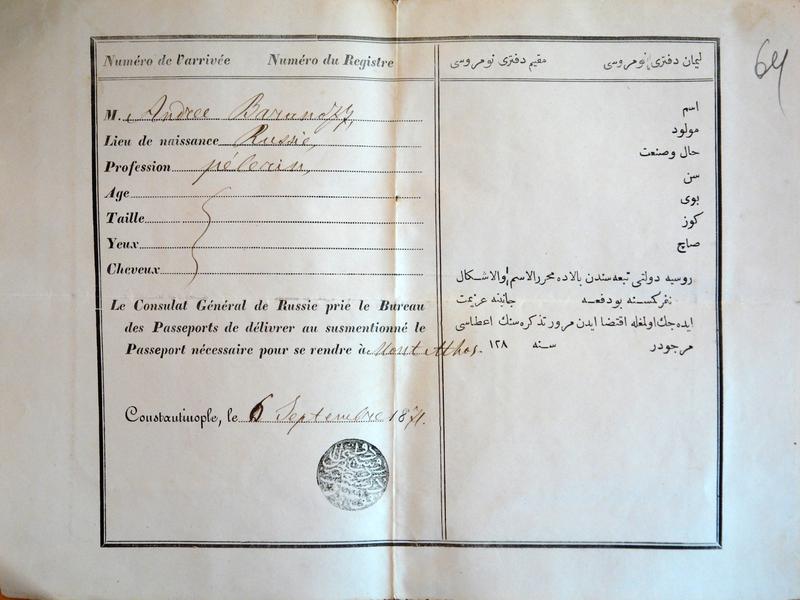 64
Numéro de l'arrivée Numéro du Registre
M. Andree
Lieu de naissance Russie,
Profession pélerin,
Age
Taille
Yeux
Cheveux
Le Consulat Général de Russie prie le Bureau
des Passeports de délivrer au susmentionné le
Passeport nécessaire pour se rendre à Mont Athos.
Constantinople, le 6 Septembre 1871.
لیمان دفتری نومروسی مقیم دفتری نومروسی
اسم
مولود
حال وصنعت
سن
بوی
کوز
صاچ
روسیه دولتی تبعه سندن بالاده محرر الاسم والاشکال
نفر کسنه بودفعه جانبنه عزیمت
ایده جك اولمغله اقتضا ایدن مرور تذکره سنك اعطاسی
مرجودر سنه ١٢٨